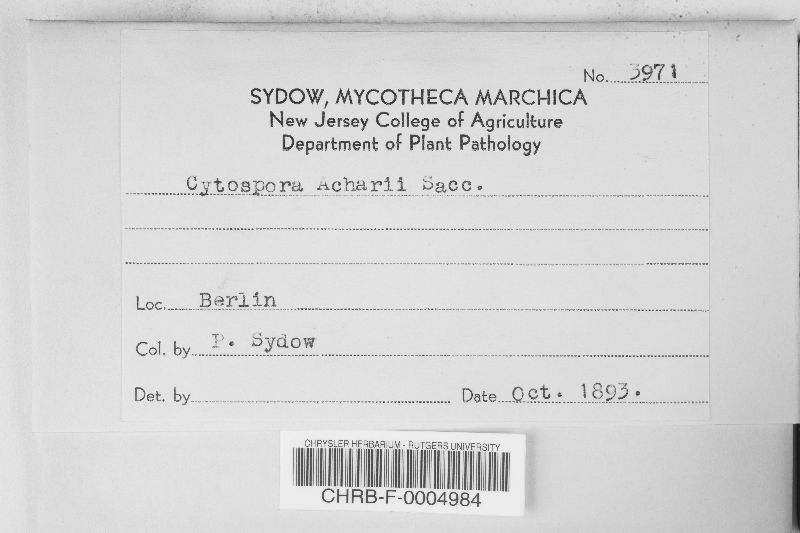 No. 3971
SYDOW, MYCOTHECA MARCHICA
New Jersey College of Agriculture
Department of Plant Pathology
Cytospora Acharii Sacc.
Loc. Berlin
Col. by P. Sydow
Det. by
Date Oct. 1893.
CHRYSLER HERBARIUM - RUTGERS UNIVERSITY
CHRB-F-0004984